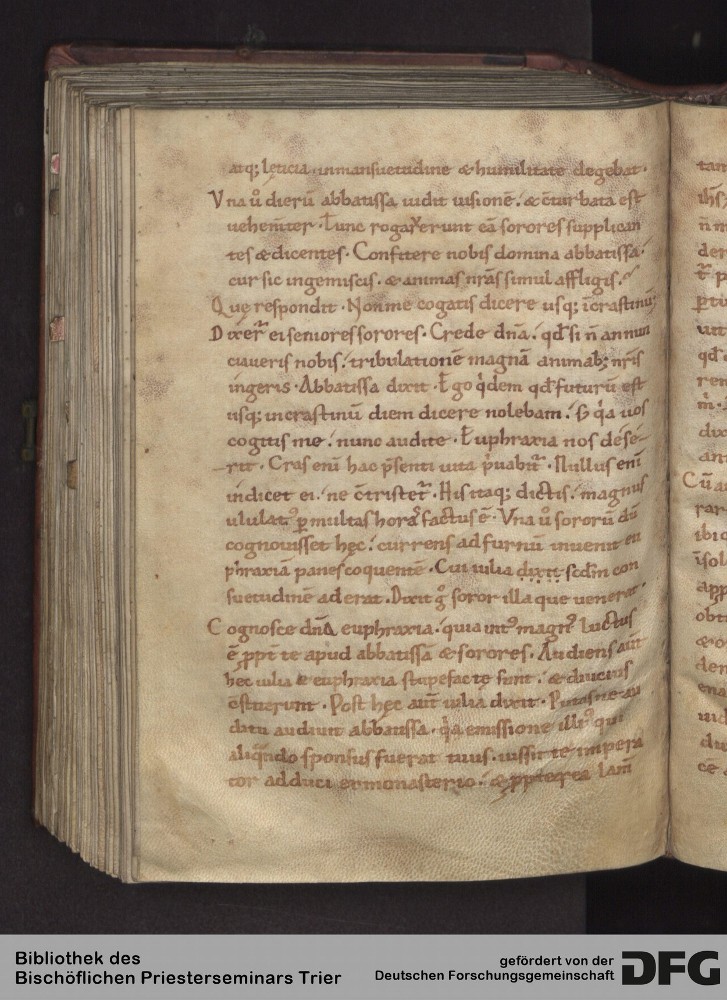 atq; lęticia. in mansuetudine & humilitate degebat.
Vna ů dierū abbatissa uidit uisionē. & c̄turbata est
uehem̄ter. Tunc rogauerunt eā sorores supplican
tes & dicentes. Confitere nobis domina abbatissa.
cur sic ingemiscis. & animas nr̄as simul affligis.
Que respondit. Non me cogatis dicere usq; ī crastinū;
Dixer̄ ei seniores sorores. Crede dn̄a. qd̄ si n̄ annun
ciaueris nobis. tribulationē magnā animab; nr̄is
ingeris. Abbatissa dixit. Ego q̓dem qd̄ futurū est
usq; in crastinū diem dicere nolebam. S; q̓a uos
cogitis me. nunc audite. Euphraxia nos dese-
-rit. Cras enī hac p̄senti uita p̓uabit̄. Nullus enī
indicet ei. ne c̄tristet̄. His itaq; dictis. magnus
ululat᾿ p̱ multas horas factus ē. Vna ů sororū dū
cognouisset hęc. currens ad furnū inuenit eu
phraxiā panes coquentē. Cui iulia dixit scdm̄ con
suetudinē aderat. Dixit g̊ soror illa que uenerat.
Cognosce dn̄a euphraxia. quia int᾿ magn᾿ luctus
ē ppt̄ te apud abbatissā & sorores. Audiens aūt
hec iulia & euphraxia stupefactę sunt. & diucius
c̄stiterunt. Post hęc aūt iulia dixit. Putasne au
ditu audiuit abbatissa. q̓a emissione illi᾿ qui
aliq̓ndo sponsus fuerat tuus. iussit te impera
tor adduci e monasterio. & pptęrea lam̄
Bibliothek des
Bischöflichen Priesterseminars Trier
gefördert von der
Deutschen Forschungsgemeinschaft
DFG